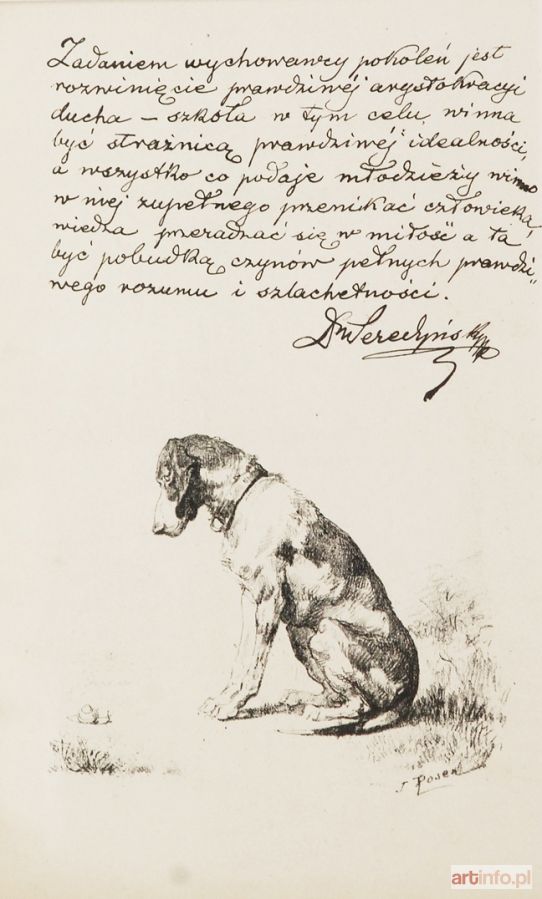 Zadaniem wychowawcy pokoleń jest
rozwinięcie prawdziwéj arystokracyi
ducha – szkoła w tym celu, winna
być strażnicą prawdziwéj idealności,
a wszystko co podaje młodzieży winno
w niej zupełnego przenikać człowieka,
wiedza przeradzać się w miłość a ta
być pobudką czynów pełnych prawdzi„
wego rozumu i szlachetności.
Dr Seredyński
J Rosen
artinfo.pl